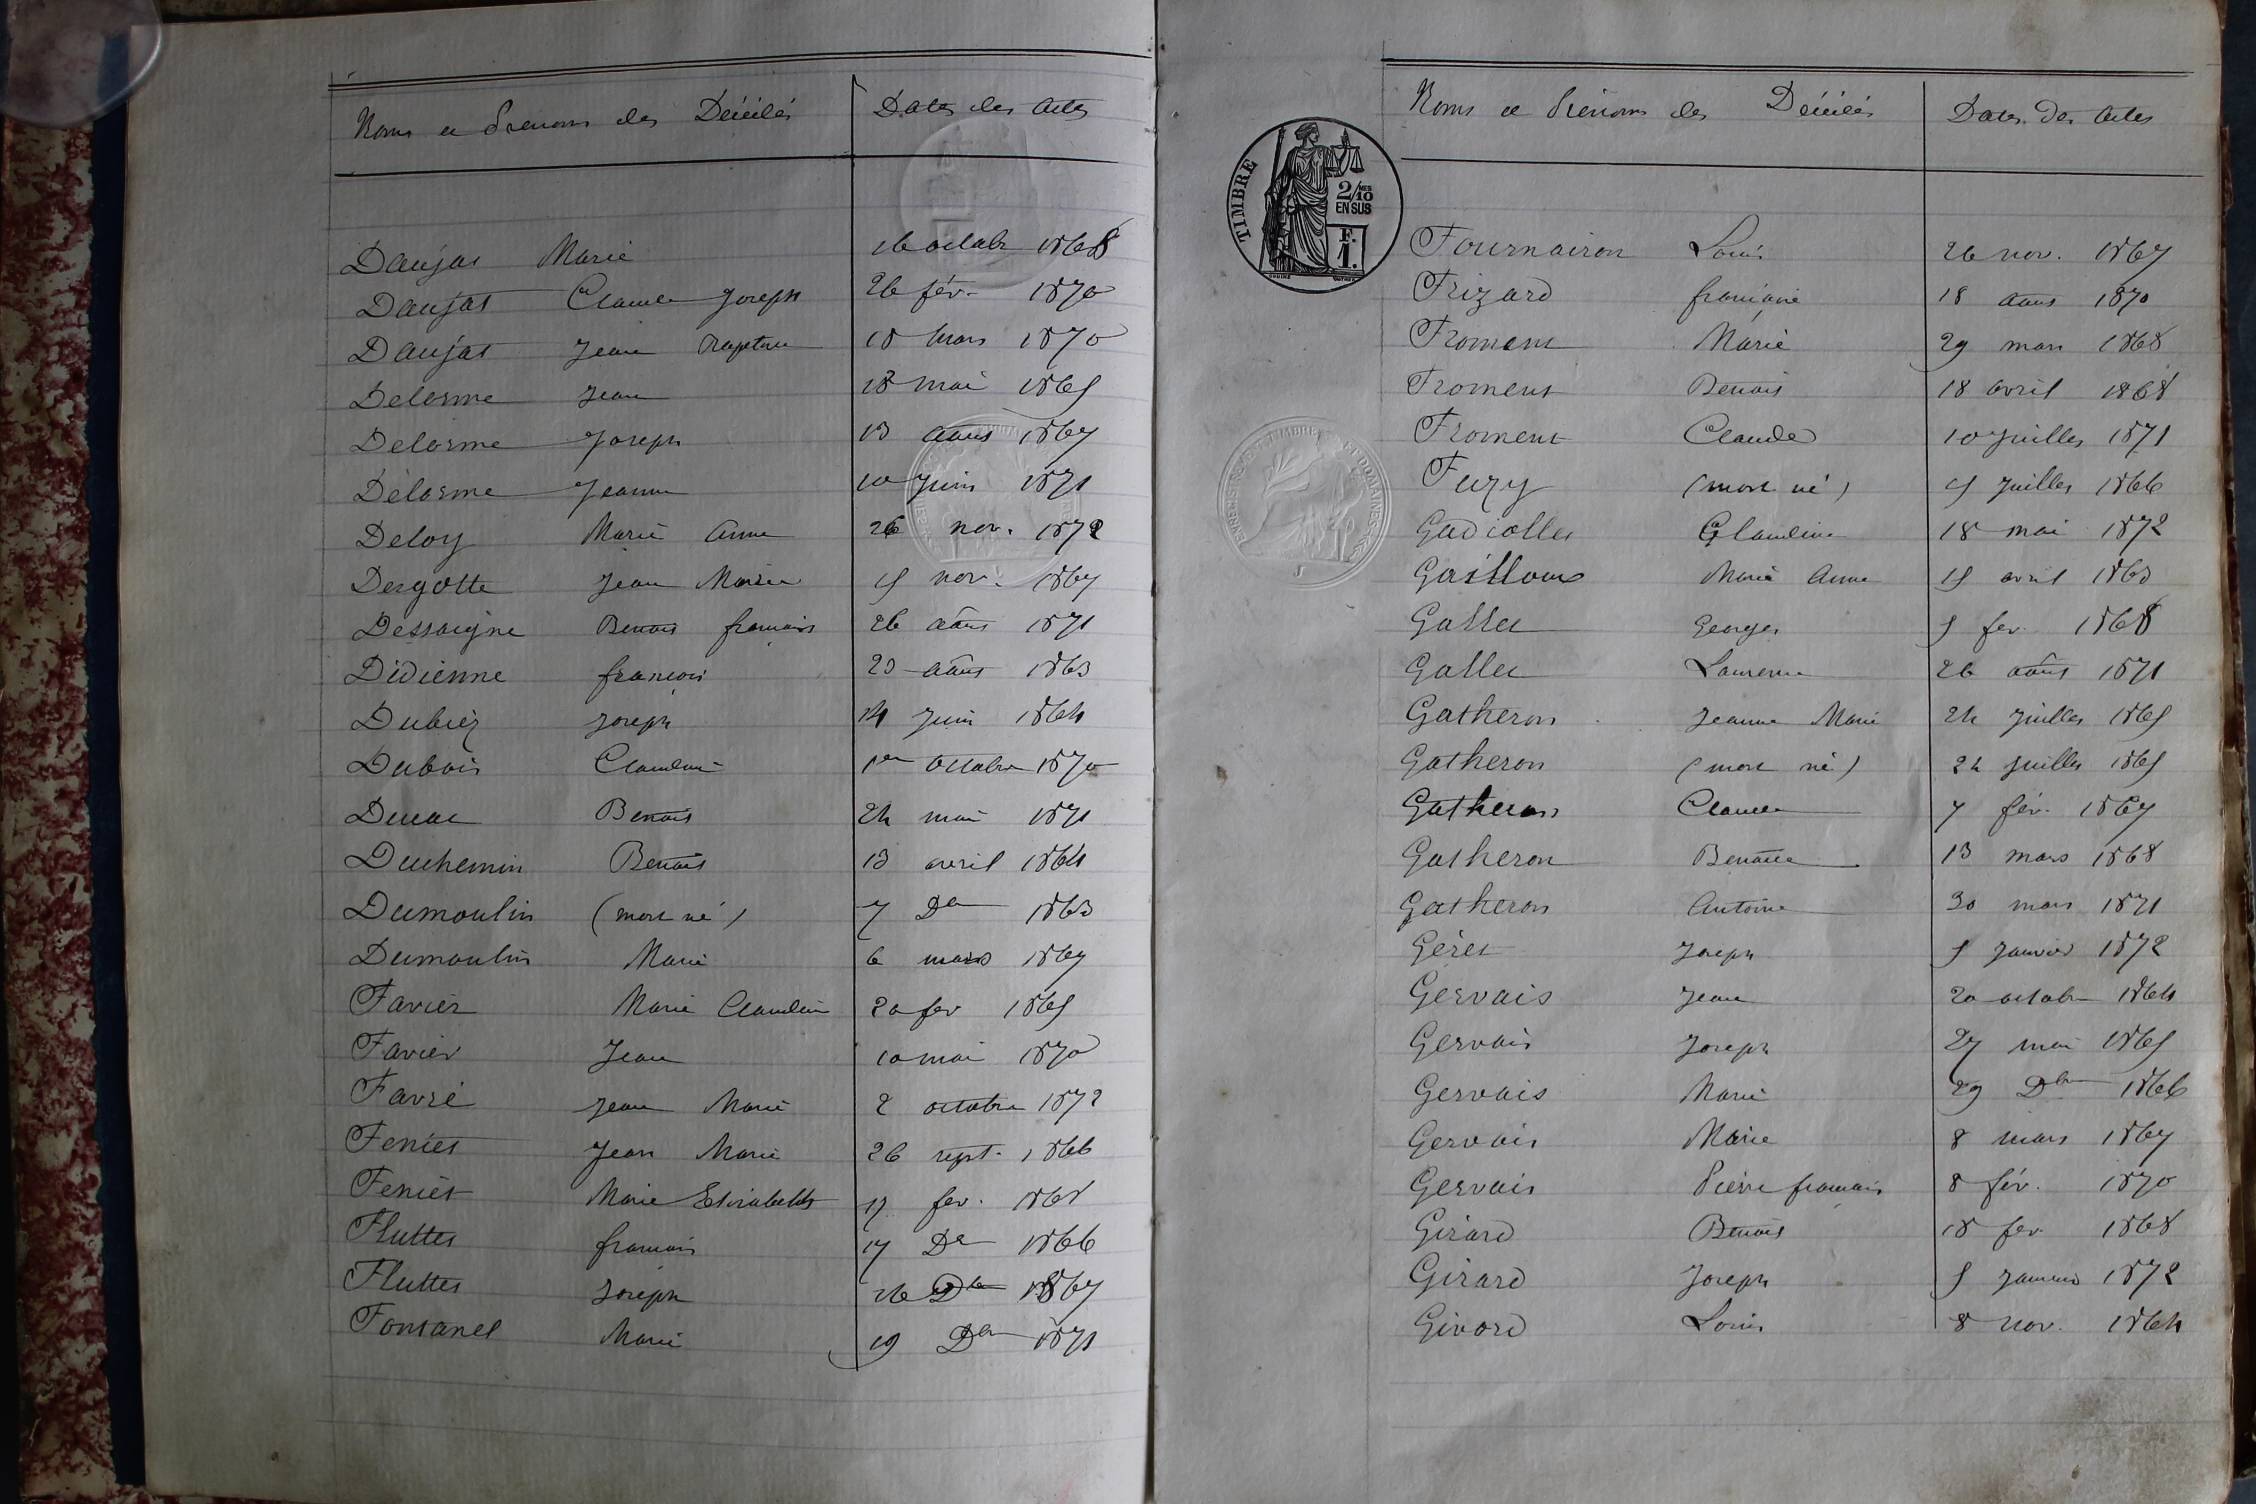 Noms et Prénoms des Décédés Dates des actes
Daujat Marie 16 octobre 1868
Daujat Claude Joseph 26 fév. 1870
Daujat Jean Baptiste 18 mars 1870
Delorme Jean 18 mai 1865
Delorme Joseph 13 août 1867
Delorme Jeanne 10 juin 1871
Deloy Marie Anne 26 nov. 1872
Dergotte Jean Marie 15 nov. 1867
Dessaigne Benoit françois 26 août 1871
Didienne françois 23 août 1863
Dubiez Joseph 14 juin 1864
Dubois Claudine 1er octobre 1870
Ducac Benoit 24 mai 1871
Duchemin Benoit 13 avril 1864
Dumoulin (mort né) 7 Dre 1863
Dumoulin Marie 6 mars 1867
Favier Marie Claudine 20 fev 1865
Favier Jean 10 mai 1870
Favre Jean Marie 2 octobre 1872
Feniet Jean Marie 26 sept. 1866
Feniet Marie Elisabeth 17 fev. 1868
Fluttet françois 17 Dre 1866
Fluttet Joseph 26 Dbre 1867
Fontanel Marie 19 Dbre 1871
Noms et Prénoms des Décédés Dates des actes
TIMBRE
2/10 MES
EN SUS
F.
1.
Fournairon Louis 26 nov. 1867
Frizard françoise 18 août 1870
Froment Marie 29 mars 1868
Froment Benoit 18 avril 1868
Froment Claude 10 juillet 1871
Fuzy (mort né) 15 juillet 1866
Gadiollet Claudine 18 mai 1872
Gailloux Marie Anne 15 avril 1863
Gallet Georges 5 fev 1868
Gallet Laurence 26 août 1871
Gatheron Jeanne Marie 24 juillet 1865
Gatheron (mort né) 24 juillet 1865
Gatheron Claude 7 fév. 1867
Gatheron Benoite 13 mars 1868
Gatheron Antoine 30 mars 1871
Géret Joseph 5 janvier 1872
Gervais Jean 20 octobre 1864
Gervais Joseph 27 mai 1865
Gervais Marie 29 Dbre 1866
Gervais Marie 8 mars 1867
Gervais Pierre françois 8 fév. 1870
Girard Benoit 18 fev 1868
Girard Joseph 5 janvier 1872
Givord Louis 8 nov. 1864